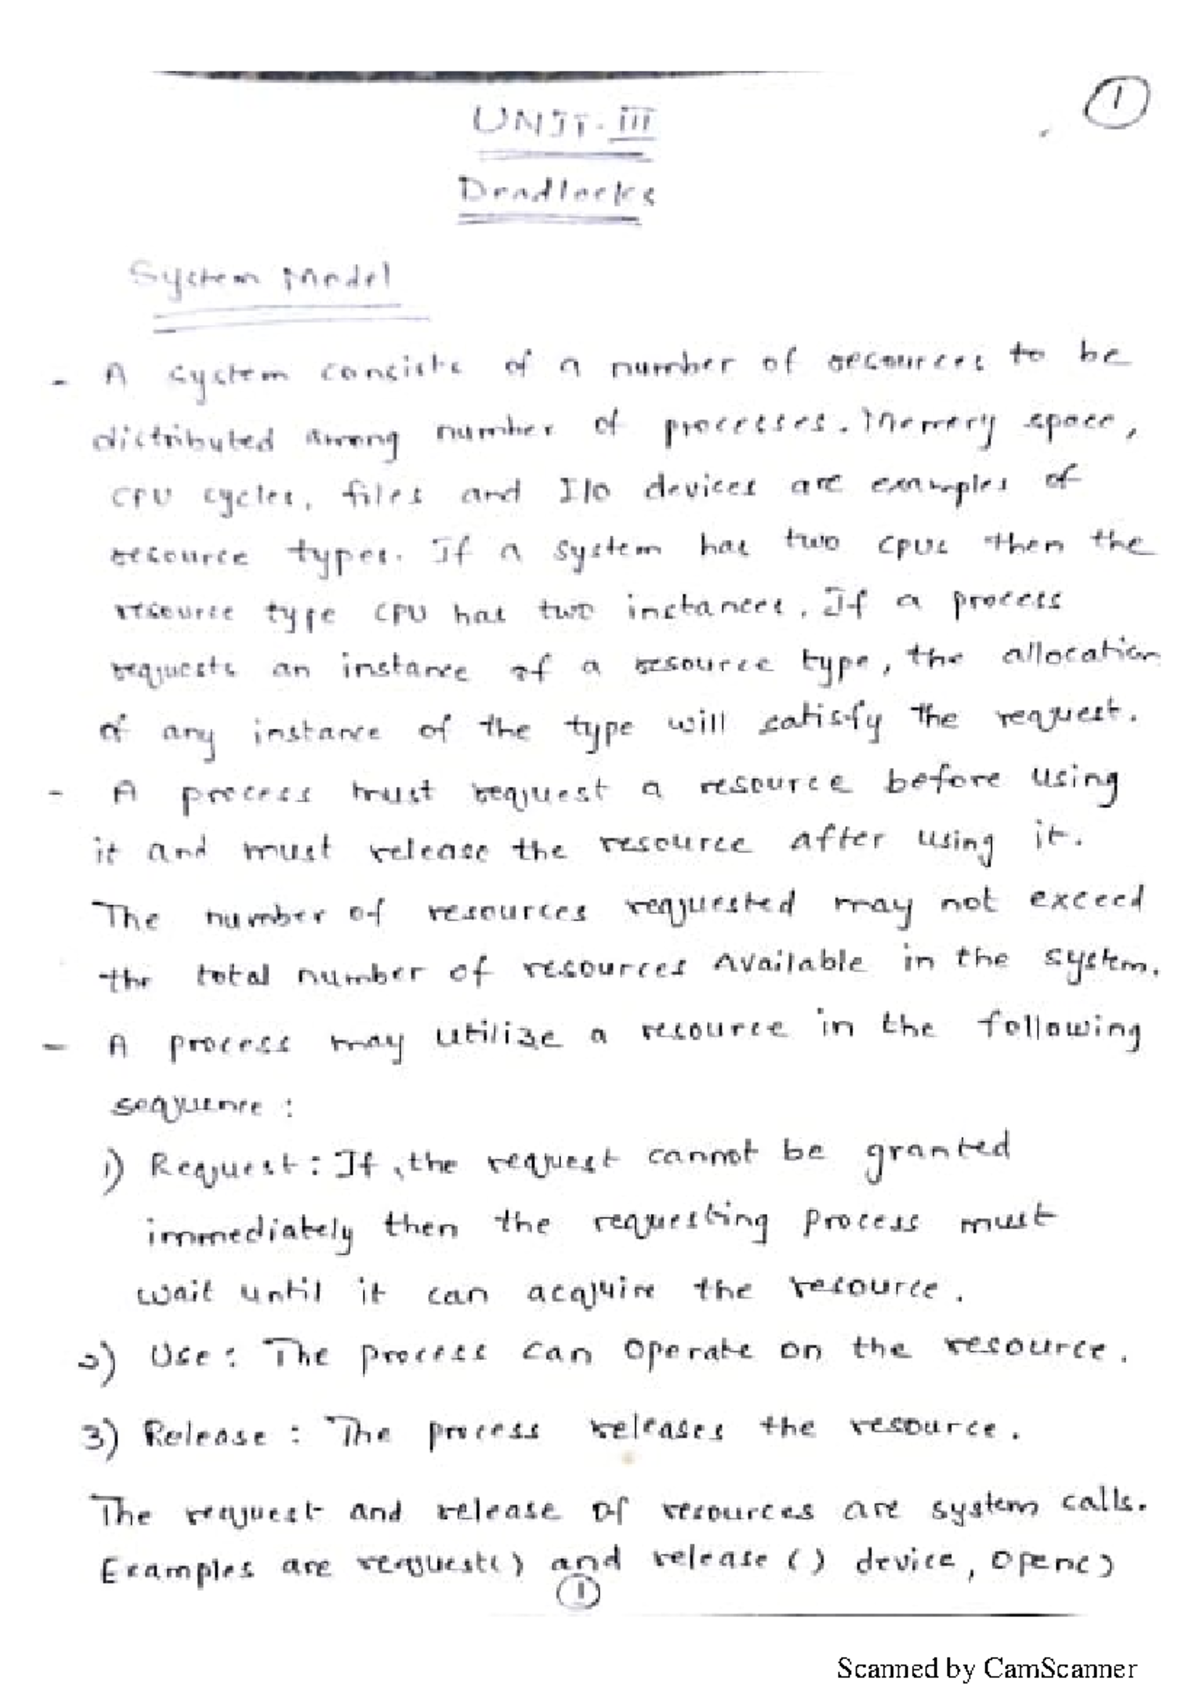 1
UNIT-III
Deadlocks
System Model
- A system consists of a number of resources to be
distributed among number of processes. Memory space,
CPU cycles, files and I/O devices are examples of
resource types. If a system has two CPUs then the
resource type CPU has two instances. If a process
requests an instance of a resource type, the allocation
of any instance of the type will satisfy the request.
- A process must request a resource before using
it and must release the resource after using it.
The number of resources requested may not exceed
the total number of resources Available in the system.
- A process may utilize a resource in the following
sequence :
1) Request : If the request cannot be granted
immediately then the requesting process must
wait until it can acquire the resource.
2) Use : The process can operate on the resource.
3) Release : The process releases the resource.
The request and release of resources are system calls.
Examples are request() and release () device, open()
1
Scanned by CamScanner